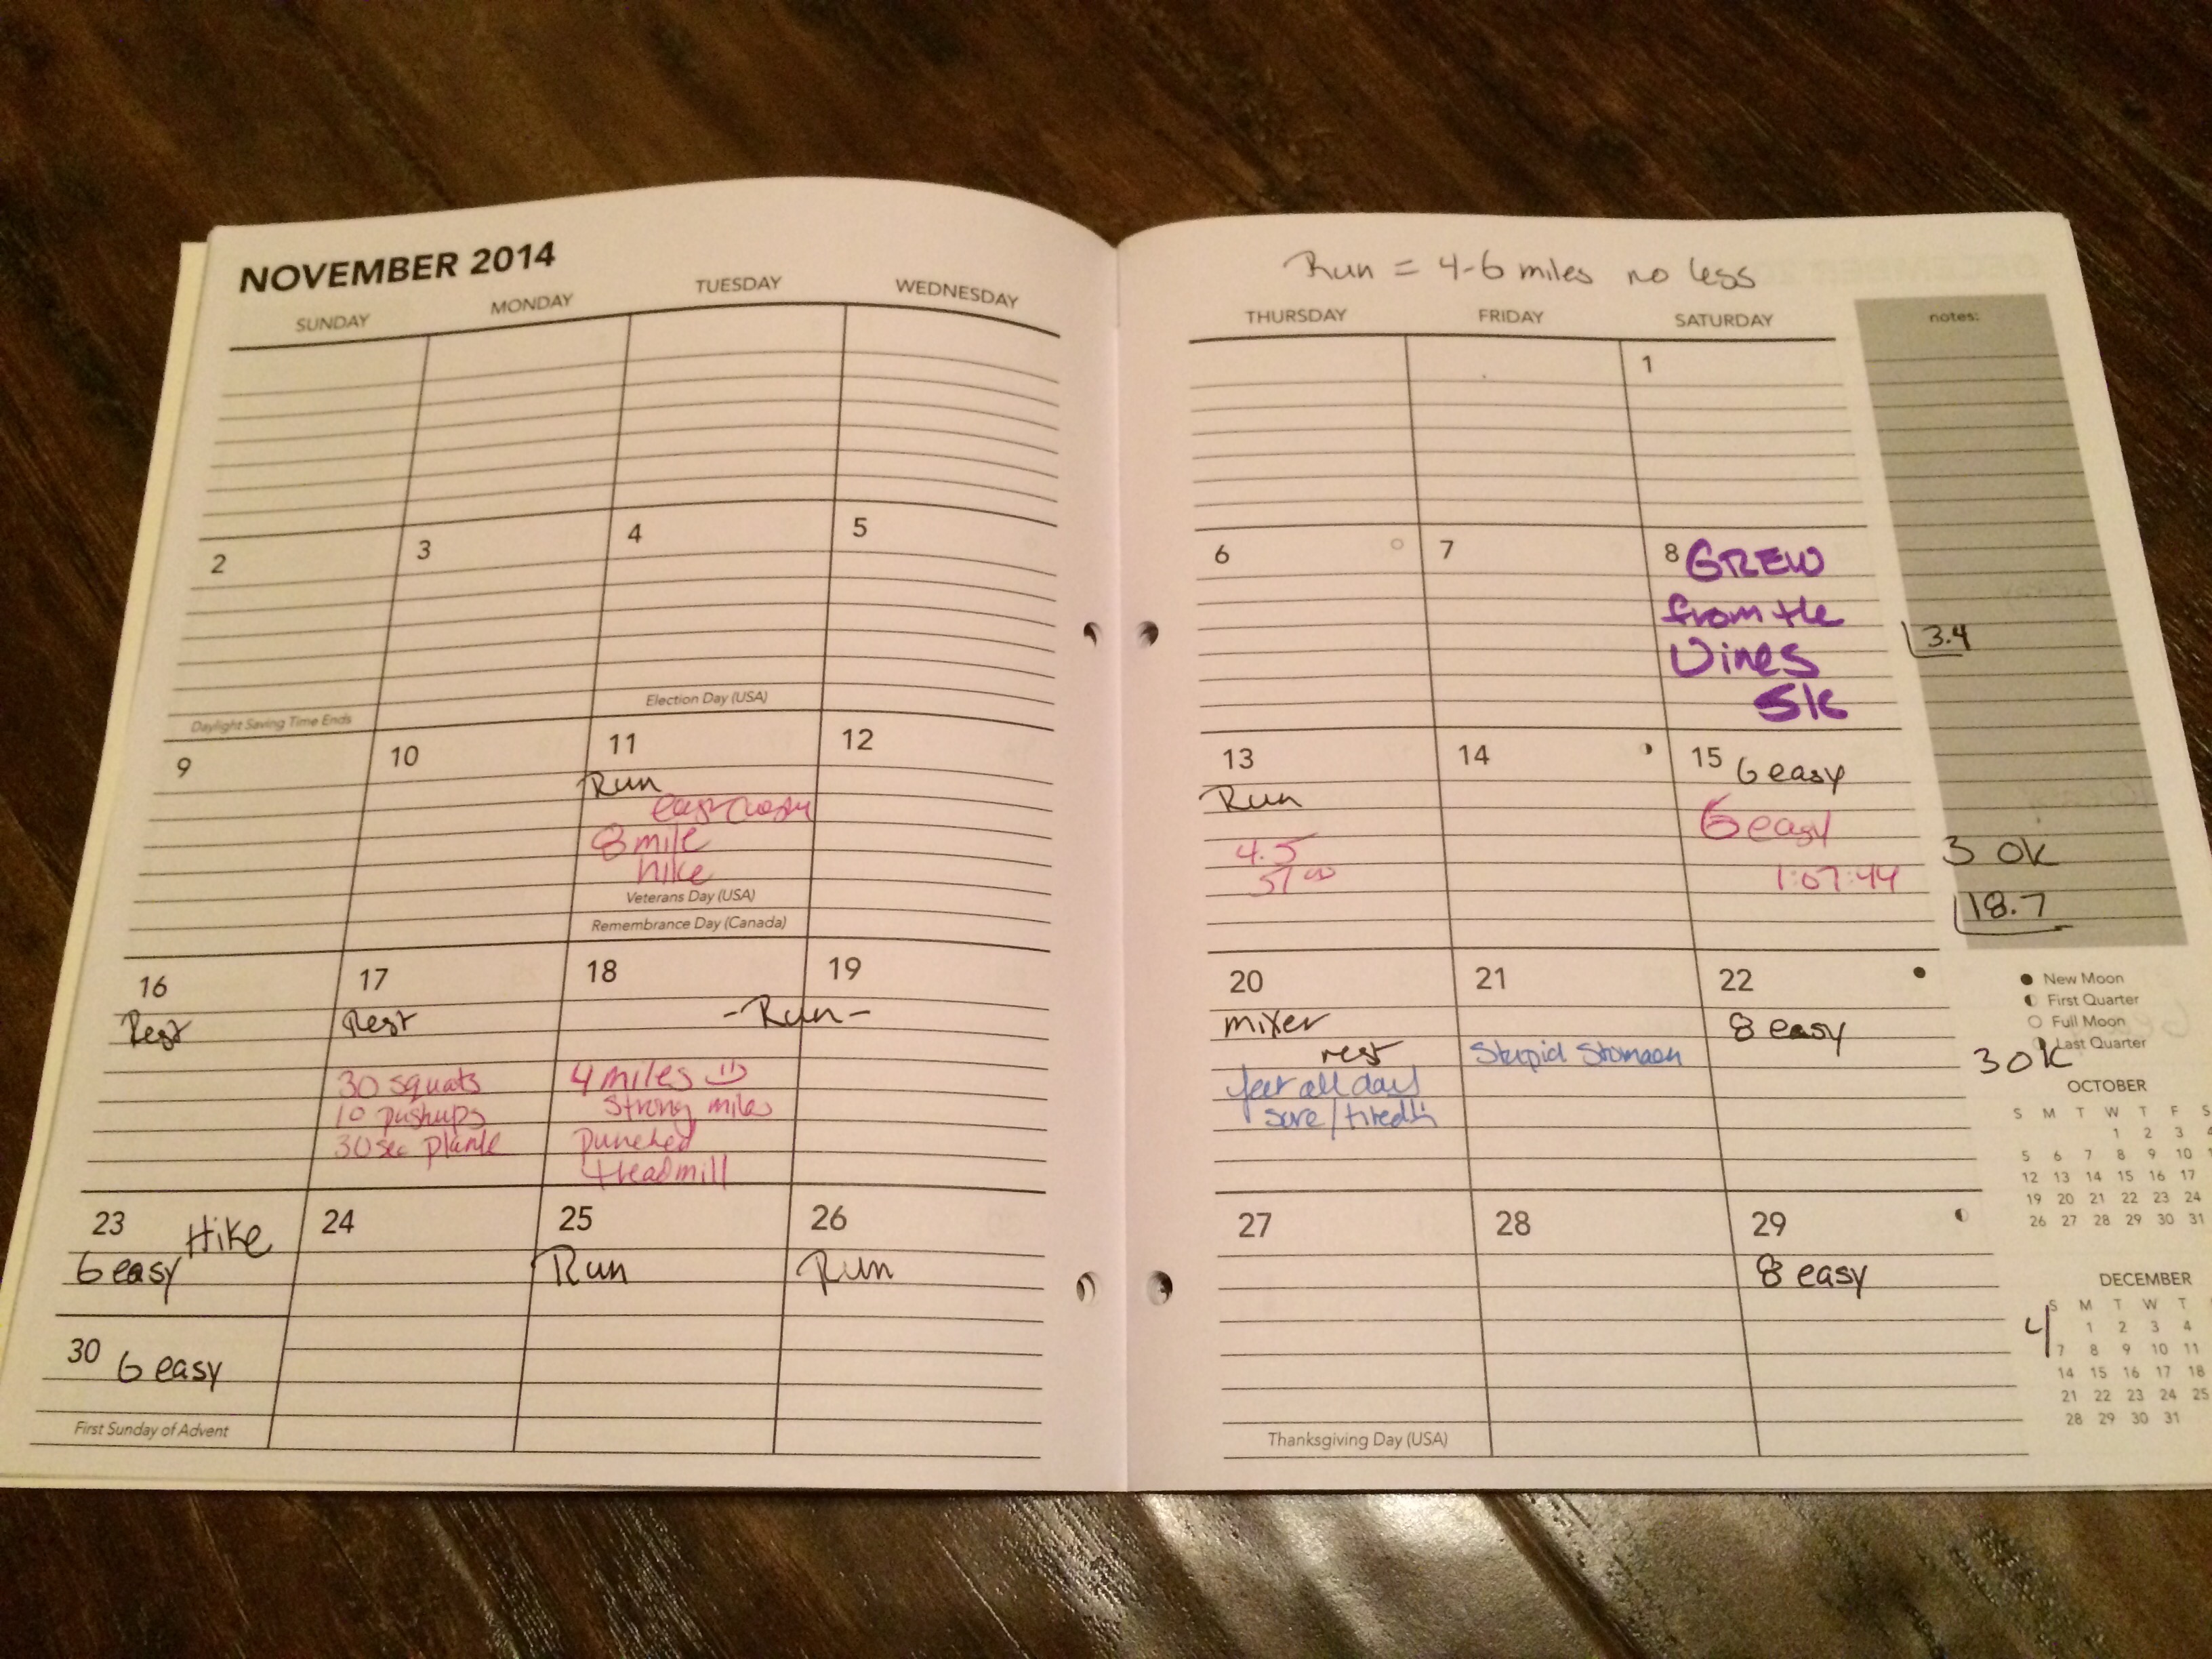 NOVEMBER 2014
SUNDAY MONDAY TUESDAY WEDNESDAY
2 3 4 5
Election Day (USA)
Daylight Saving Time Ends
9 10 11 12
Run
8 mile
hike
Veterans Day (USA)
Remembrance Day (Canada)
16 17 18 19
Rest Rest -Run-
30 squats 4 miles
10 pushups strong miles
30 sec plank Punched
treadmill
23 Hike 24 25 26
6 easy Run Run
30 6 easy
First Sunday of Advent
Run = 4-6 miles no less
THURSDAY FRIDAY SATURDAY notes:
1
6 7 8 GREW
from the
3.4
Vines
5K
13 14 15 6 easy
Run
6 easy
4.5 3 0K
1:07:44
18.7
20 21 22
mixer 8 easy
rest Stupid Stomach
feet all day
sore/tired!!
30K
27 28 29
8 easy
Thanksgiving Day (USA)
New Moon
First Quarter
Full Moon
Last Quarter
OCTOBER
S M T W T F S
1 2 3 4
5 6 7 8 9 10 1
12 13 14 15 16 17
19 20 21 22 23 24
26 27 28 29 30 31
DECEMBER
S M T W T
4
1 2 3 4
7 8 9 10 11
14 15 16 17 18
21 22 23 24 25
28 29 30 31